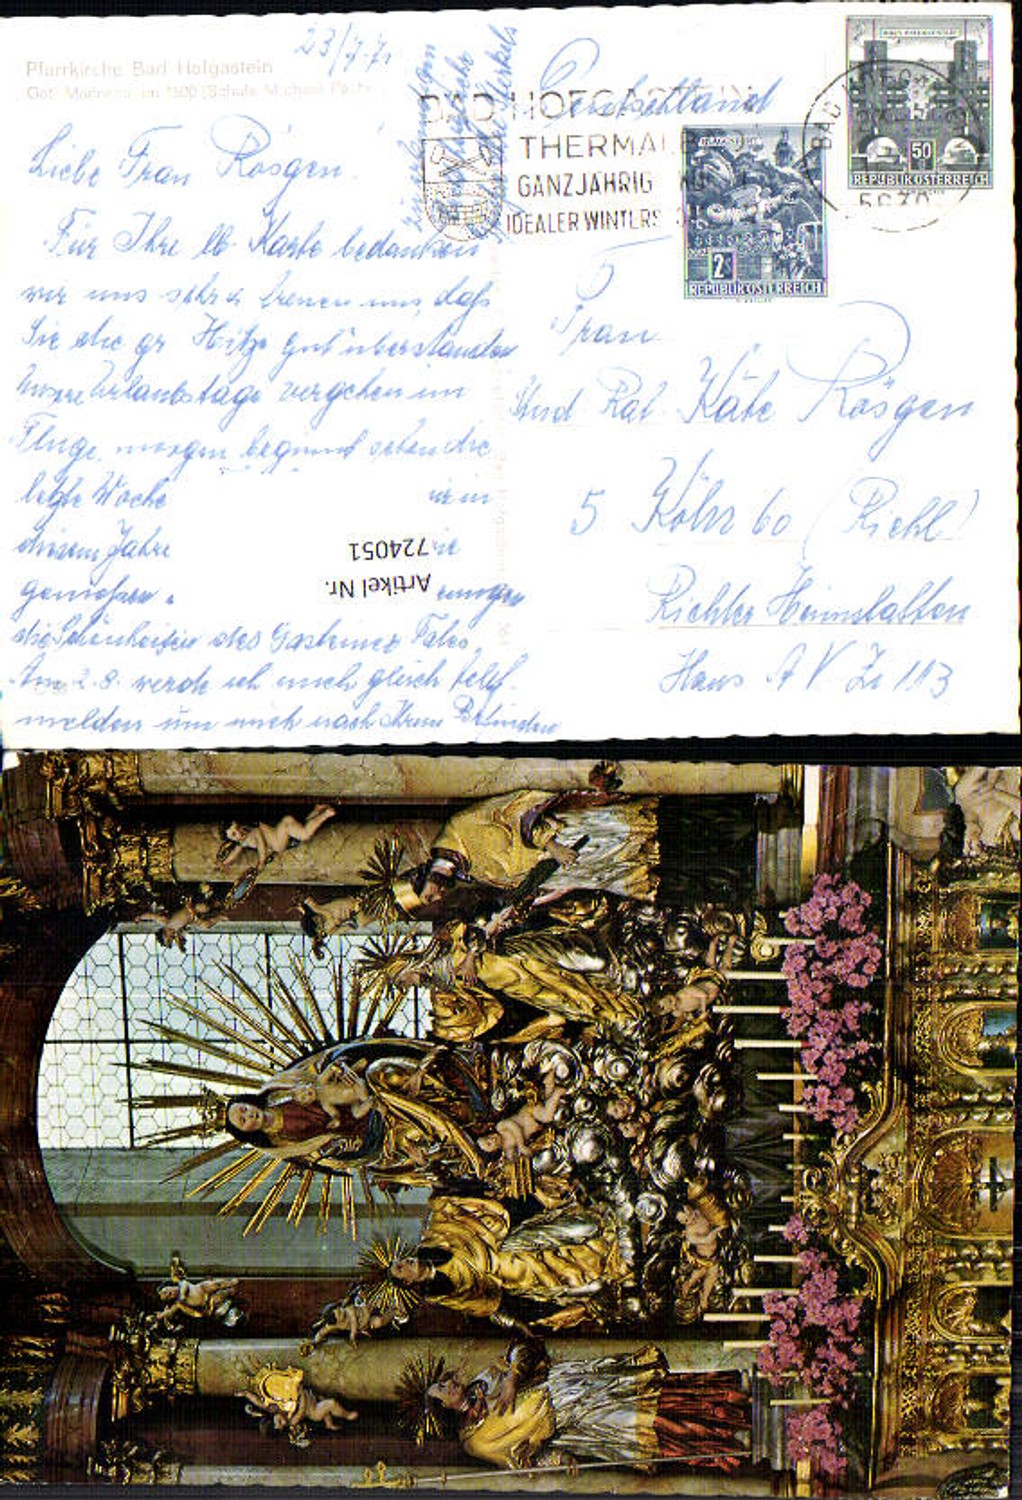 23/7.71
Pfarrkirche Bad Hofgastein
Got. Madonna um 1500 (Schule Michael Pacher
Liebe Frau Rösgen!
Für Ihre lb. Karte bedanken
wir uns sehr u. freuen uns, daß
Sie die gr. Hitze gut überstanden
Unsere Urlaubstage vergehen im
Fluge, morgen beginnt schon die
letzte Woche
diesem Jahre
genießen.
die Schönheiten des Gasteiner Tales.
Am 2.8. werde ich mich gleich telef.
melden um mich nach Ihrem Befinden
Artikel Nr.
724051
BAD HOFGASTEIN
THERMAL
GANZJÄHRIG
IDEALER WINTERS
Deutschland
50
REPUBLIK ÖSTERREICH
2S
REPUBLIK ÖSTERREICH
BAD HOFG
5630
Frau
Stud Rat Käte Rösgen
5 Köln 60 (Riehl)
Riehler Heimstätten
Haus A V Zi 113